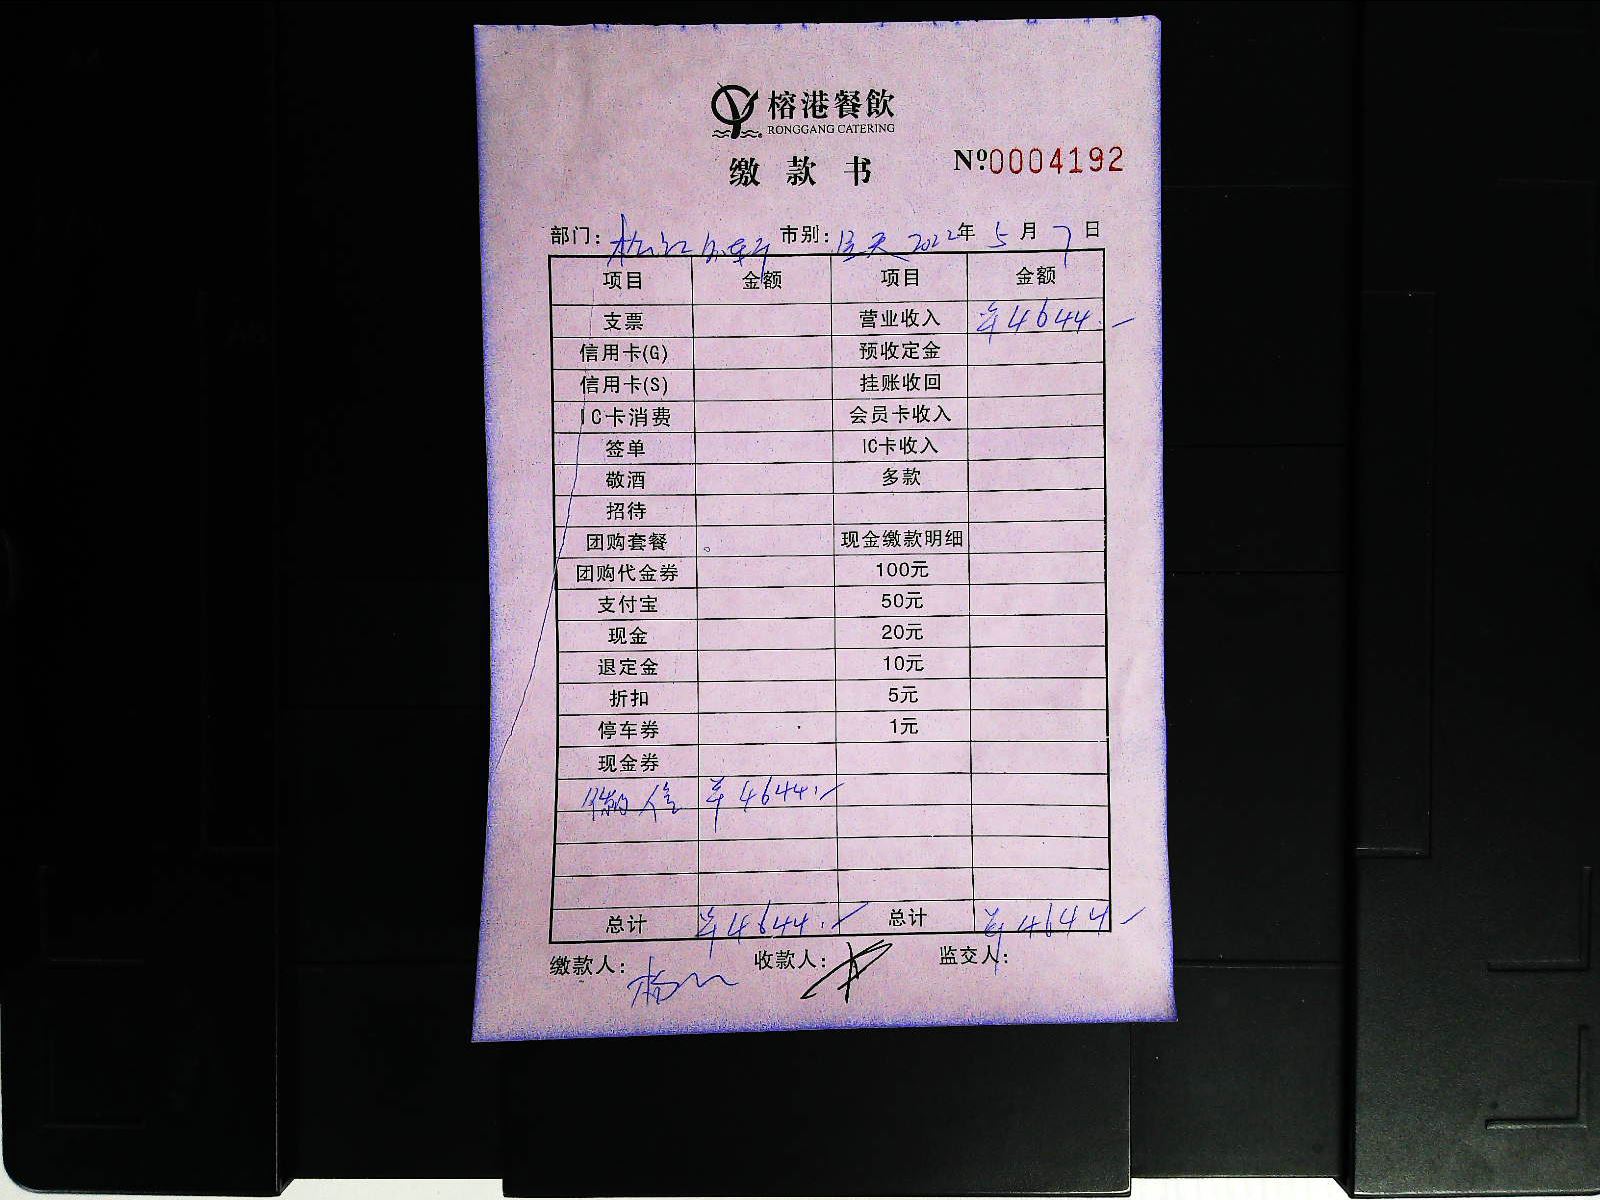 榕港餐飲
RONGGANG CATERING
缴款书 Nº0004192
部门: 松江 市别: 全天 2022年 5月 7日
项目 金额 项目 金额
支票 营业收入 ¥4644.-
信用卡(G) 预收定金
信用卡(S) 挂账收回
IC卡消费 会员卡收入
签单 IC卡收入
敬酒 多款
招待
团购套餐 现金缴款明细
团购代金券 100元
支付宝 50元
现金 20元
退定金 10元
折扣 5元
停车券 1元
现金券
¥4644.-
总计 ¥4644.- 总计 ¥4644-
缴款人: 杨 收款人: 监交人: